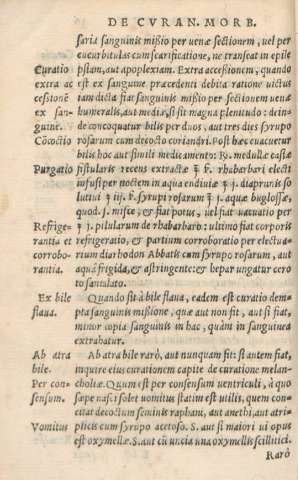 DE CVRAN. MORB.
saria sanguinis mißio per venæ sectionem, vel per
cucurbitulas cum scarificatione, ne transeat in epile
Curatio psiam, aut apoplexiam. Extra accessionem, quando
extra ac est ex sanguine præcedenti debita ratione victus
cessionē iam dicta fiat sanguinis mißio per sectionem venæ
ex san- humeralis, aut mediæ, si sit magna plenitudo: dein-
guine. de concoquatur bilis per duos, aut tres dies syrupo
Cōcoctio rosarum cum decocto coriandri. Post hæc evacuetur
bilis hoc aut simili medicamento: ℞. medullæ casiæ
Purgatio fistularis recens extractæ ʒ ß. rhabarbari electi
infusi per noctem in aqua endiviæ ʒ j. diaprunis so
lutivi ʒ iij. ß. syrupi rosarum ʒ j. aquæ buglossæ,
quod. s. misce, & fiat potus, vel fiat vacuatio per
Refrige- ʒ j. pilularum de rhabarbaro: ultimo fiat corporis
rantia et refrigeratio, & partium corroboratio per electua-
corrobo- rium diarhodon Abbatis cum syrupo rosarum, aut
rantia. aqua frigida, & astringente: & hepar ungatur cero
to santulato.
Ex bile Quando sit à bile flava, eadem est curatio dem-
flava. pta sanguinis mißione, quæ aut non fit, aut si fiat,
minor copia sanguinis in hac, quàm in sanguinea
extrahatur.
Ab atra Ab atra bile rarò, aut nunquam fit: si autem fiat,
bile. inquire eius curationem capite de curatione melan-
Per con choliæ. Quum est per consensum ventriculi, à quo
sensum. sæpe nasci solet vomitus statim est utilis, quem con-
citat decoctum seminis raphani, aut anethi, aut atri-
Vomitus plicis cum syrupo acetoso. S. aut si maiori vi opus
est oxymellæ. S. aut cū uncia una oxymellis scillitici.
Rarò